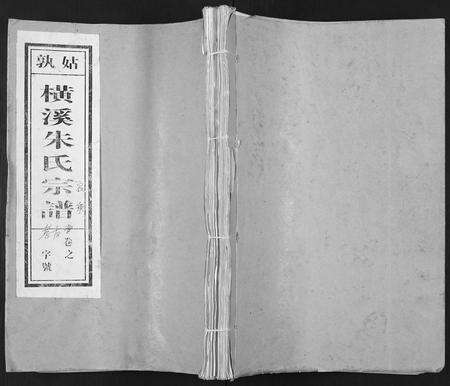 姑孰
橫溪朱氏宗譜
卷之
字號